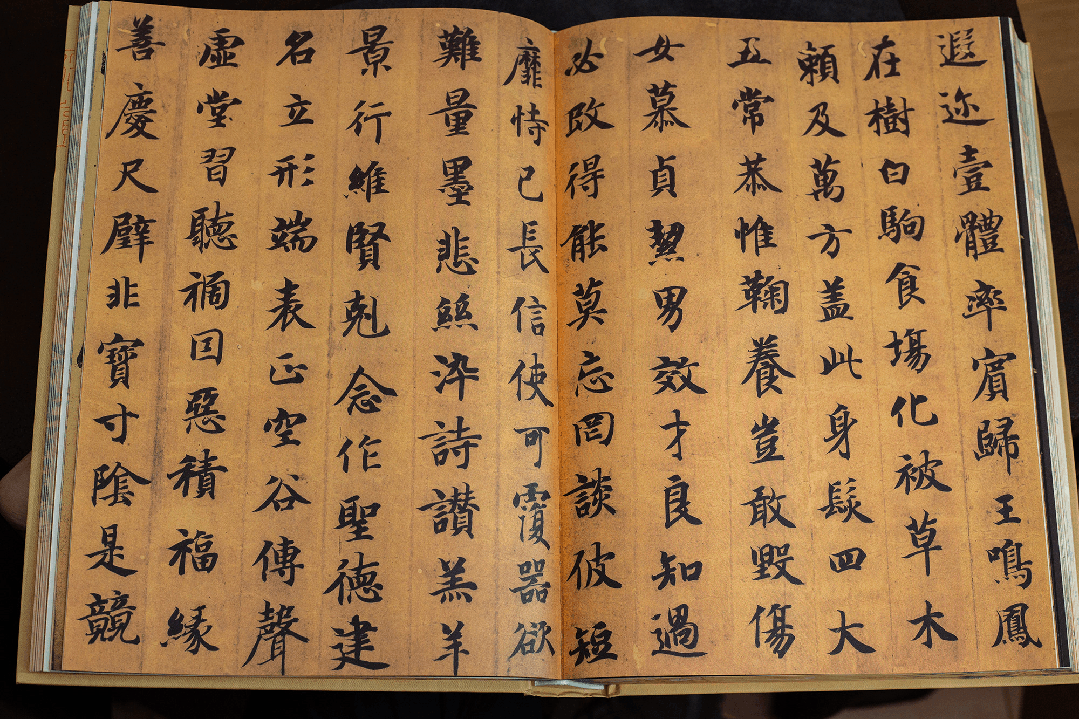 遐迩壹體率賓歸王鳴鳳
在樹白駒食場化被草木
賴及萬方盖此身髮四大
五常恭惟鞠養豈敢毀傷
女慕貞絜男效才良知過
必改得能莫忘罔談彼短
靡恃己長信使可覆器欲
難量墨悲絲染詩讚羔羊
景行維賢剋念作聖德建
名立形端表正空谷傳聲
虛堂習聽禍囙惡積福緣
善慶尺璧非寶寸陰是競